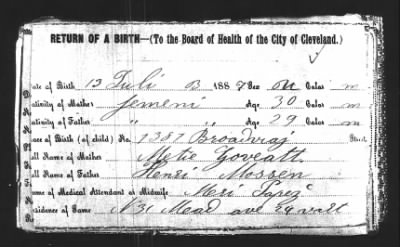 RETURN OF A BIRTH—(To the Board of Health of the City of Cleveland.)
ate of Birth 13 Juli B 1887 Sex Color m
ativity of Mother Jemeni Age 30 Color m
ativity of Father " " Age 29 Color m
ace of Birth (of child) No. 1387 Broadvaj Street
ll Name of Mother Metie
ll Name of Father Henri Mossen
ame of Medical Attendant or Midwife Meri
esidence of Same N 31 Mead ave